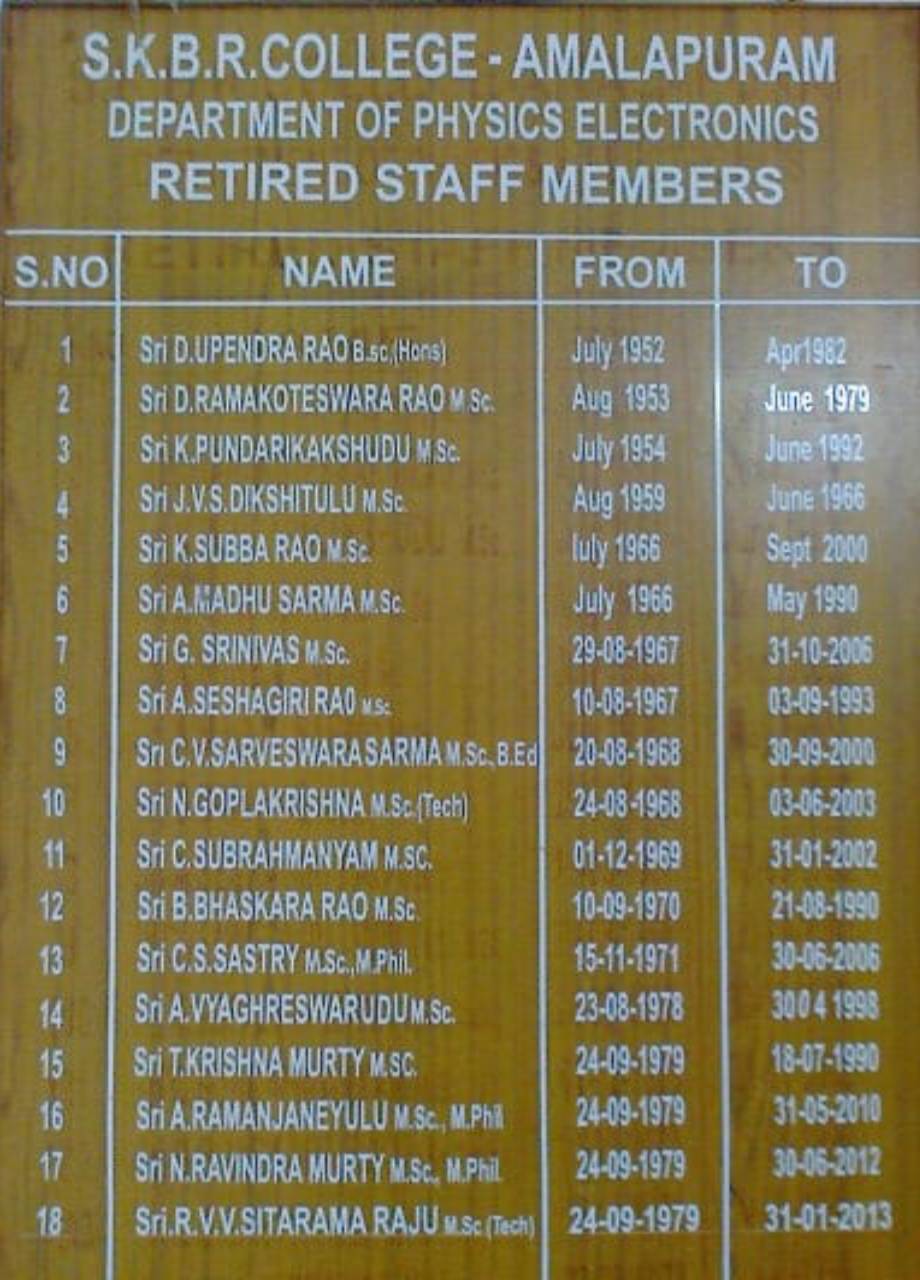 S.K.B.R.COLLEGE - AMALAPURAM
DEPARTMENT OF PHYSICS ELECTRONICS
RETIRED STAFF MEMBERS
S.NO NAME FROM TO
1 Sri D.UPENDRA RAO B.sc,(Hons) July 1952 Apr1982
2 Sri D.RAMAKOTESWARA RAO M.Sc. Aug 1953 June 1979
3 Sri K.PUNDARIKAKSHUDU M.Sc. July 1954 June 1992
4 Sri J.V.S.DIKSHITULU M.Sc. Aug 1959 June 1966
5 Sri K.SUBBA RAO M.Sc. July 1966 Sept 2000
6 Sri A.MADHU SARMA M.Sc. July 1966 May 1990
7 Sri G. SRINIVAS M.Sc. 29-08-1967 31-10-2006
8 Sri A.SESHAGIRI RAO M.Sc. 10-08-1967 03-09-1993
9 Sri C.V.SARVESWARA SARMA M.Sc., B.Ed 20-08-1968 30-09-2000
10 Sri N.GOPLAKRISHNA M.Sc.(Tech) 24-08-1968 03-06-2003
11 Sri C.SUBRAHMANYAM M.SC. 01-12-1969 31-01-2002
12 Sri B.BHASKARA RAO M.Sc. 10-09-1970 21-08-1990
13 Sri C.S.SASTRY M.Sc.,M.Phil. 15-11-1971 30-06-2006
14 Sri A.VYAGHRESWARUDU M.Sc. 23-08-1978 30 04 1998
15 Sri T.KRISHNA MURTY M.SC. 24-09-1979 18-07-1990
16 Sri A.RAMANJANEYULU M.Sc., M.Phil 24-09-1979 31-05-2010
17 Sri N.RAVINDRA MURTY M.Sc., M.Phil. 24-09-1979 30-06-2012
18 Sri.R.V.V.SITARAMA RAJU M.Sc.(Tech) 24-09-1979 31-01-2013